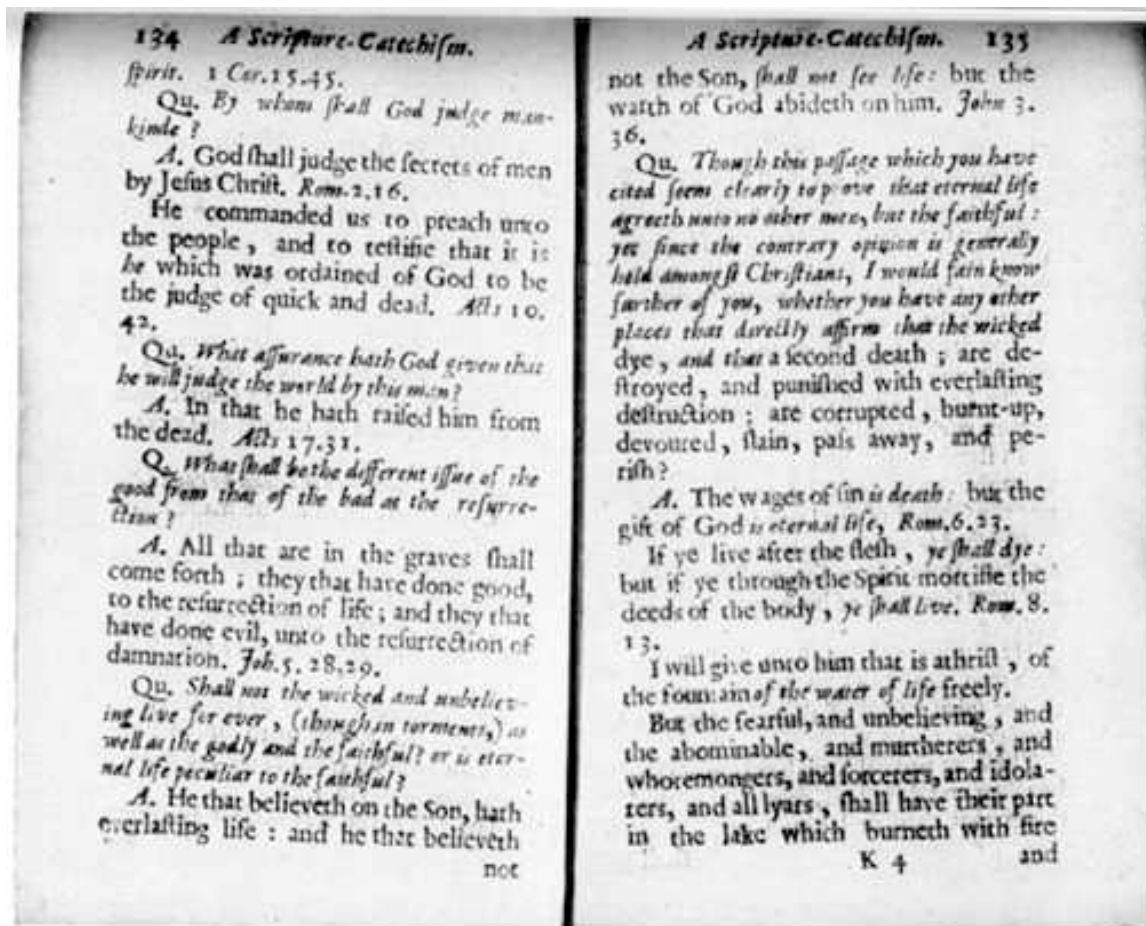 134 A Scripture-Catechiſm.
ſpirit. 1 Cor.15.45.
Qu. By whom ſhall God judge man-
kinde ?
A. God ſhall judge the ſecrets of men
by Jeſus Chriſt. Rom.2.16.
He commanded us to preach unto
the people, and to teſtifie that it is
he which was ordained of God to be
the judge of quick and dead. Acts 10.
42.
Qu. What aſſurance hath God given that
he will judge the world by this man?
A. In that he hath raiſed him from
the dead. Acts 17.31.
Q. What ſhall be the different iſſue of the
good from that of the bad at the reſurre-
ction ?
A. All that are in the graves ſhall
come forth ; they that have done good,
to the reſurrection of life ; and they that
have done evil, unto the reſurrection of
damnation. Joh.5.28,29.
Qu. Shall not the wicked and unbeliev-
ing live for ever, (though in torments,) as
well as the godly and the faithful? or is eter-
nal life peculiar to the faithful?
A. He that believeth on the Son, hath
everlaſting life : and he that believeth
not
A Scripture-Catechiſm. 135
not the Son, ſhall not ſee life: but the
wrath of God abideth on him. John 3.
36.
Qu. Though this paſſage which you have
cited ſeem clearly to prove that eternal life
agreeth unto no other men, but the faithful :
yet ſince the contrary opinion is generally
held amongſt Chriſtians, I would fain know
farther of you, whether you have any other
places that directly affirm that the wicked
dye, and that a ſecond death ; are de-
ſtroyed, and puniſhed with everlaſting
deſtruction ; are corrupted, burnt-up,
devoured, ſlain, paſs away, and pe-
riſh ?
A. The wages of ſin is death: but the
gift of God is eternal life, Rom.6.23.
If ye live after the fleſh, ye ſhall dye:
but if ye through the Spirit mortifie the
deeds of the body, ye ſhall live. Rom.8.
13.
I will give unto him that is athriſt, of
the fountain of the water of life freely.
But the fearful, and unbelieving, and
the abominable, and murtherers, and
whoremongers, and ſorcerers, and idola-
ters, and all lyars, ſhall have their part
in the lake which burneth with fire
K 4 and